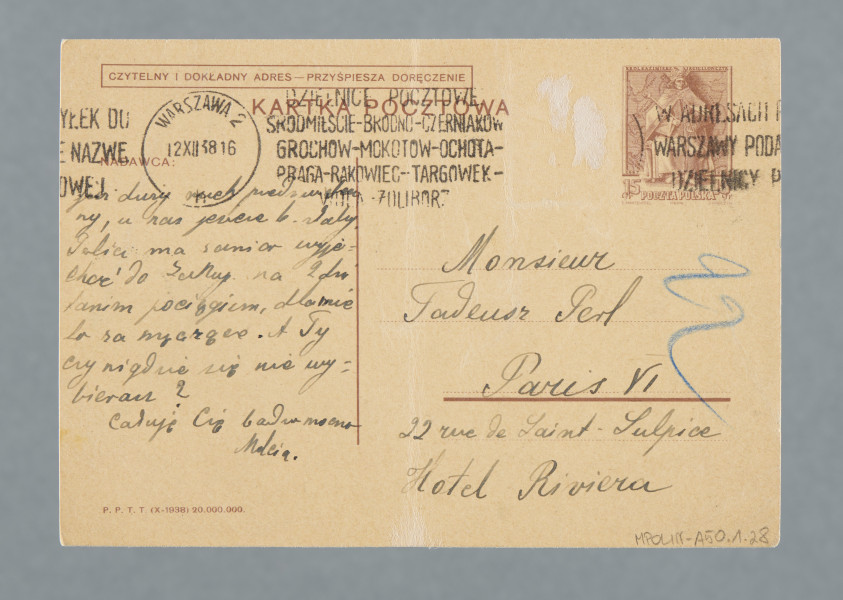 CZYTELNY I DOKŁADNY ADRES—PRZYŚPIESZA DORĘCZENIE
KARTKA POCZTOWA
YŁEK DO
E NAZWĘ
OWEJ
WARSZAWA 2
12XII38 16
DZIELNICE POCZTOWE
ŚRÓDMIEŚCIE-BRÓDNO-CZERNIAKÓW
GROCHÓW-MOKOTÓW-OCHOTA-
PRAGA-RAKOWIEC-TARGÓWEK-
WOLA-ŻOLIBORZ
W ADRESACH
WARSZAWY PODA
DZIELNICY P
15 POCZTA POLSKA 15
NADAWCA:
jest duży ruch
ny, u nas jeszcze b. mały.
ma zamiar wyje-
chać do Zakop. na 2 dni
tanim pociągiem, dla mnie
to za męczące. A Ty
czy nigdzie się nie wy-
bierasz?
Całuję Cię bardzo mocno
Monsieur
Tadeusz Perl
Paris VI
22 rue de Saint-Sulpice
Hotel Riviera
P. P. T. T (X-1938) 20.000.000.
MPOLIN-A50.1.28